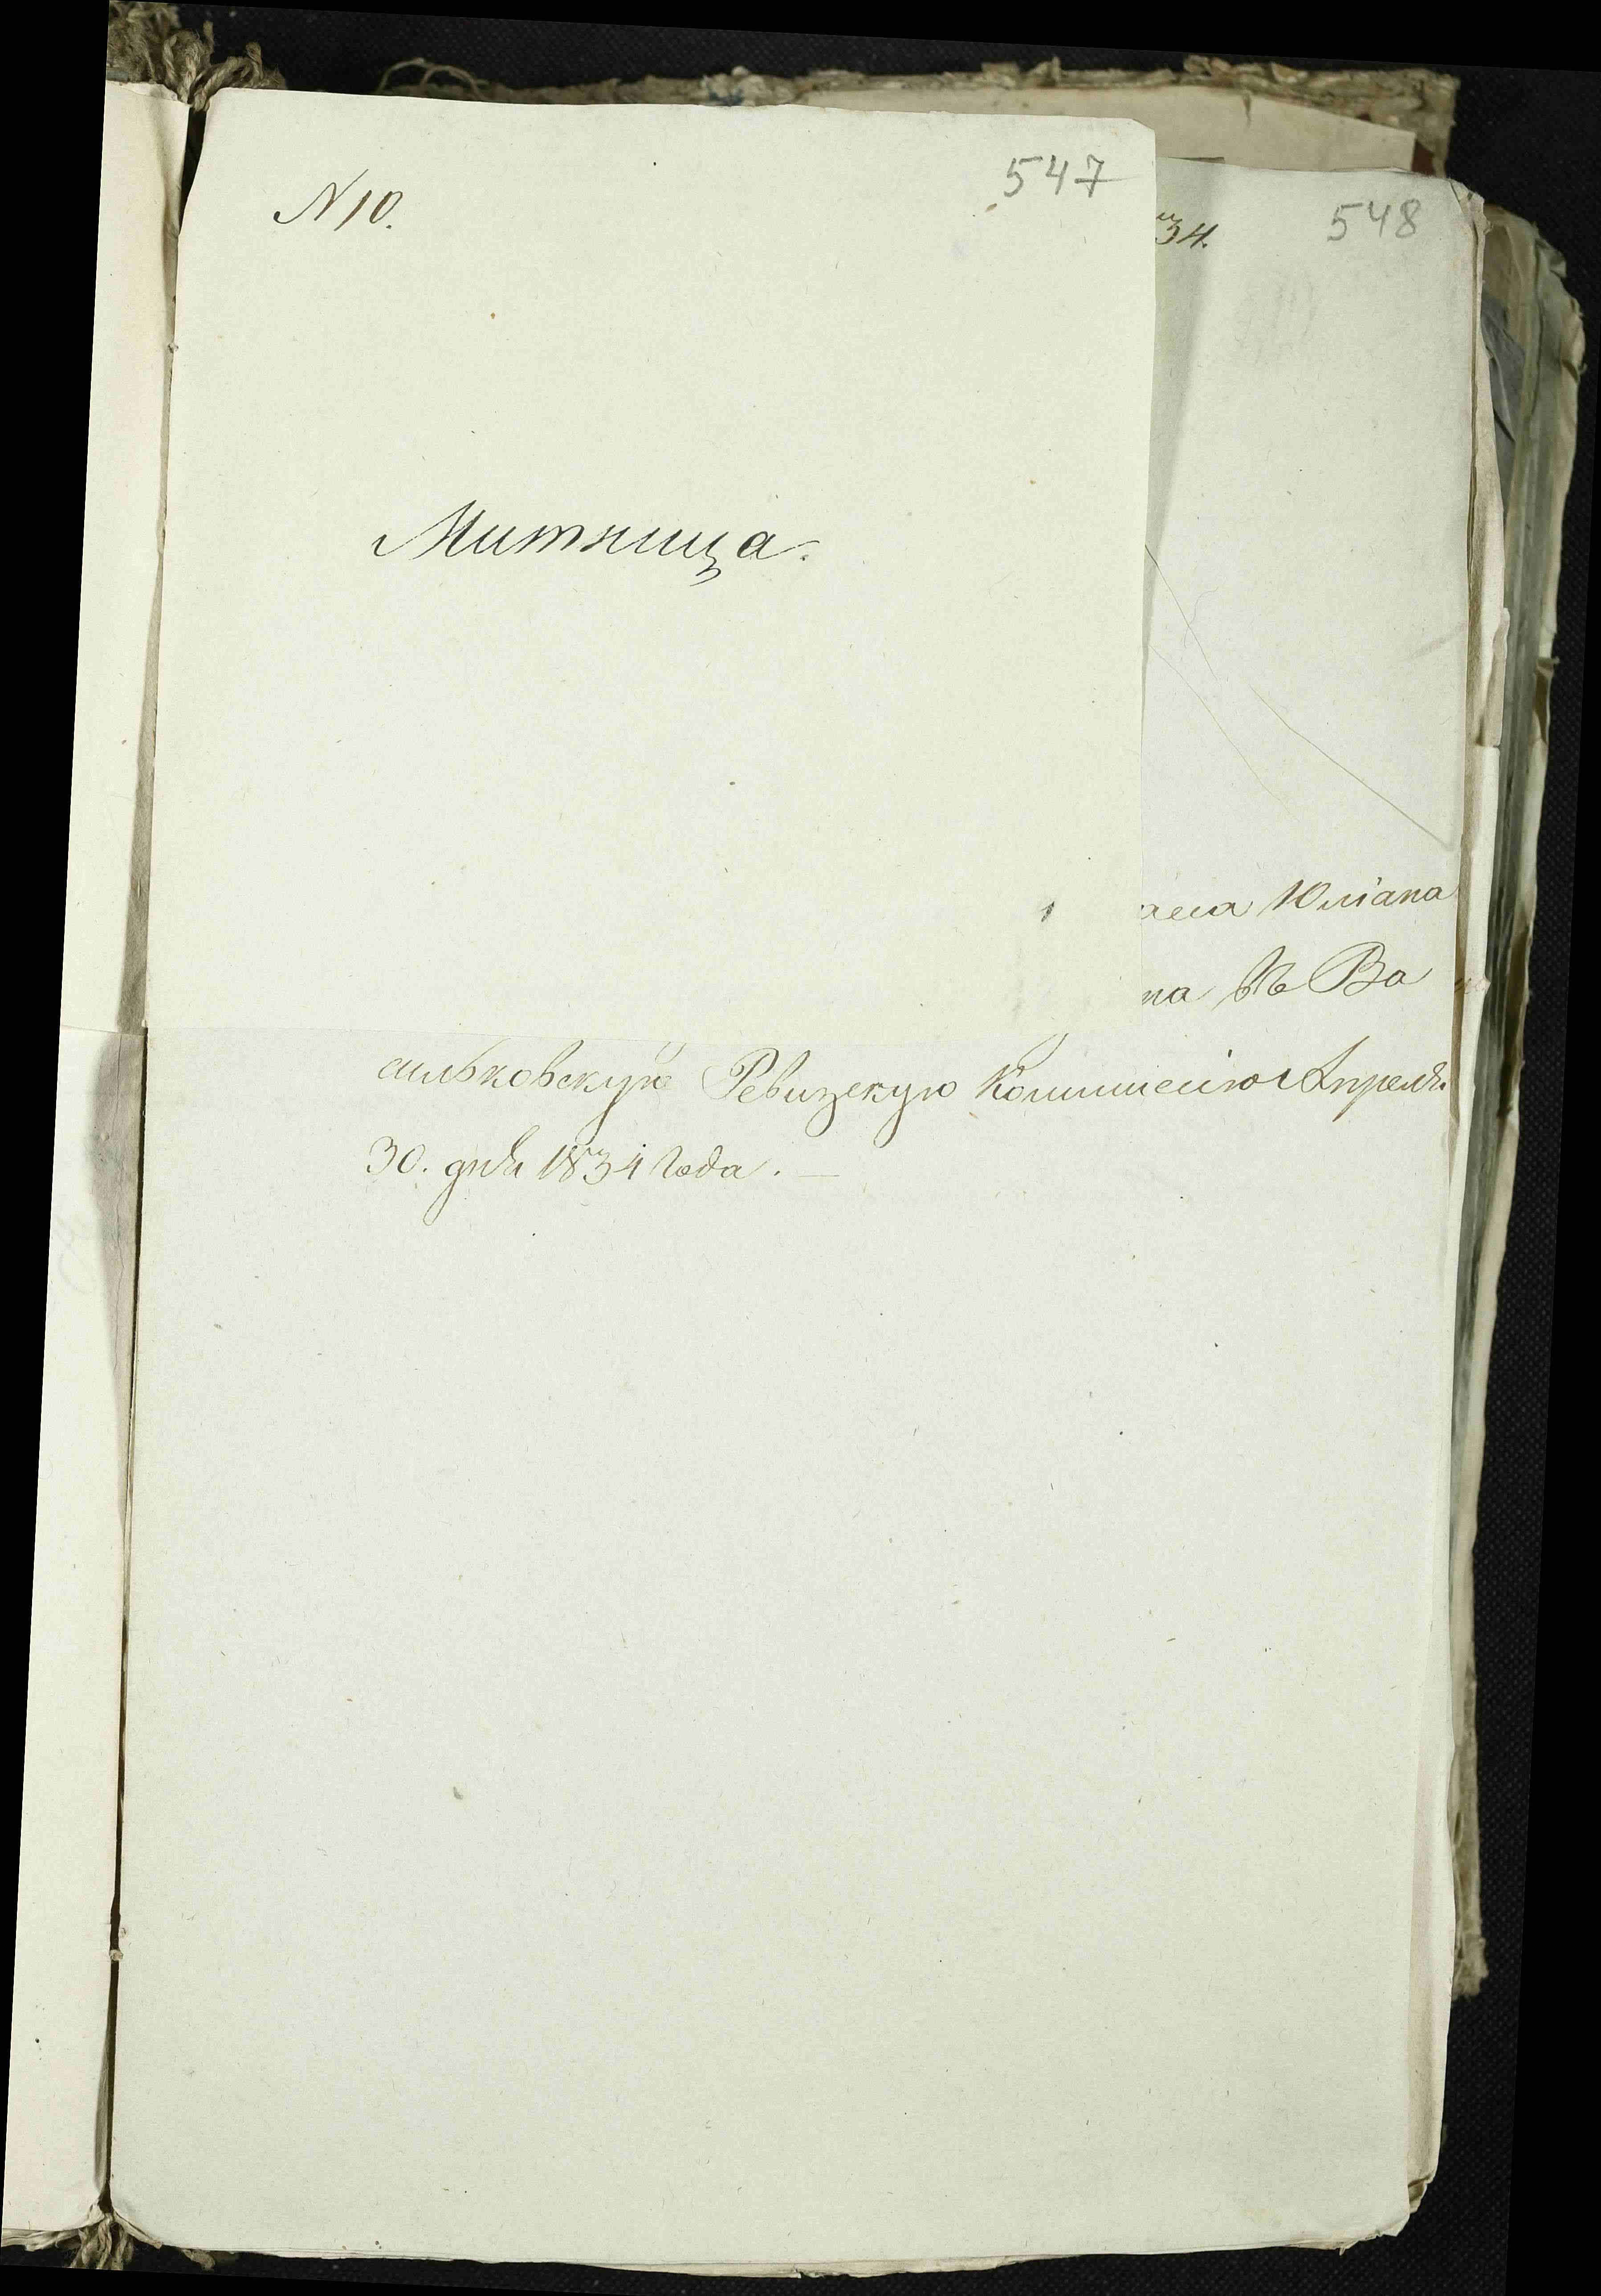 N 10.
547
34.
548
Митница.
Юлiана
на въ Ва
сильковскую Ревизскую Коммисiю Апреля
30. дня 1834 года. —